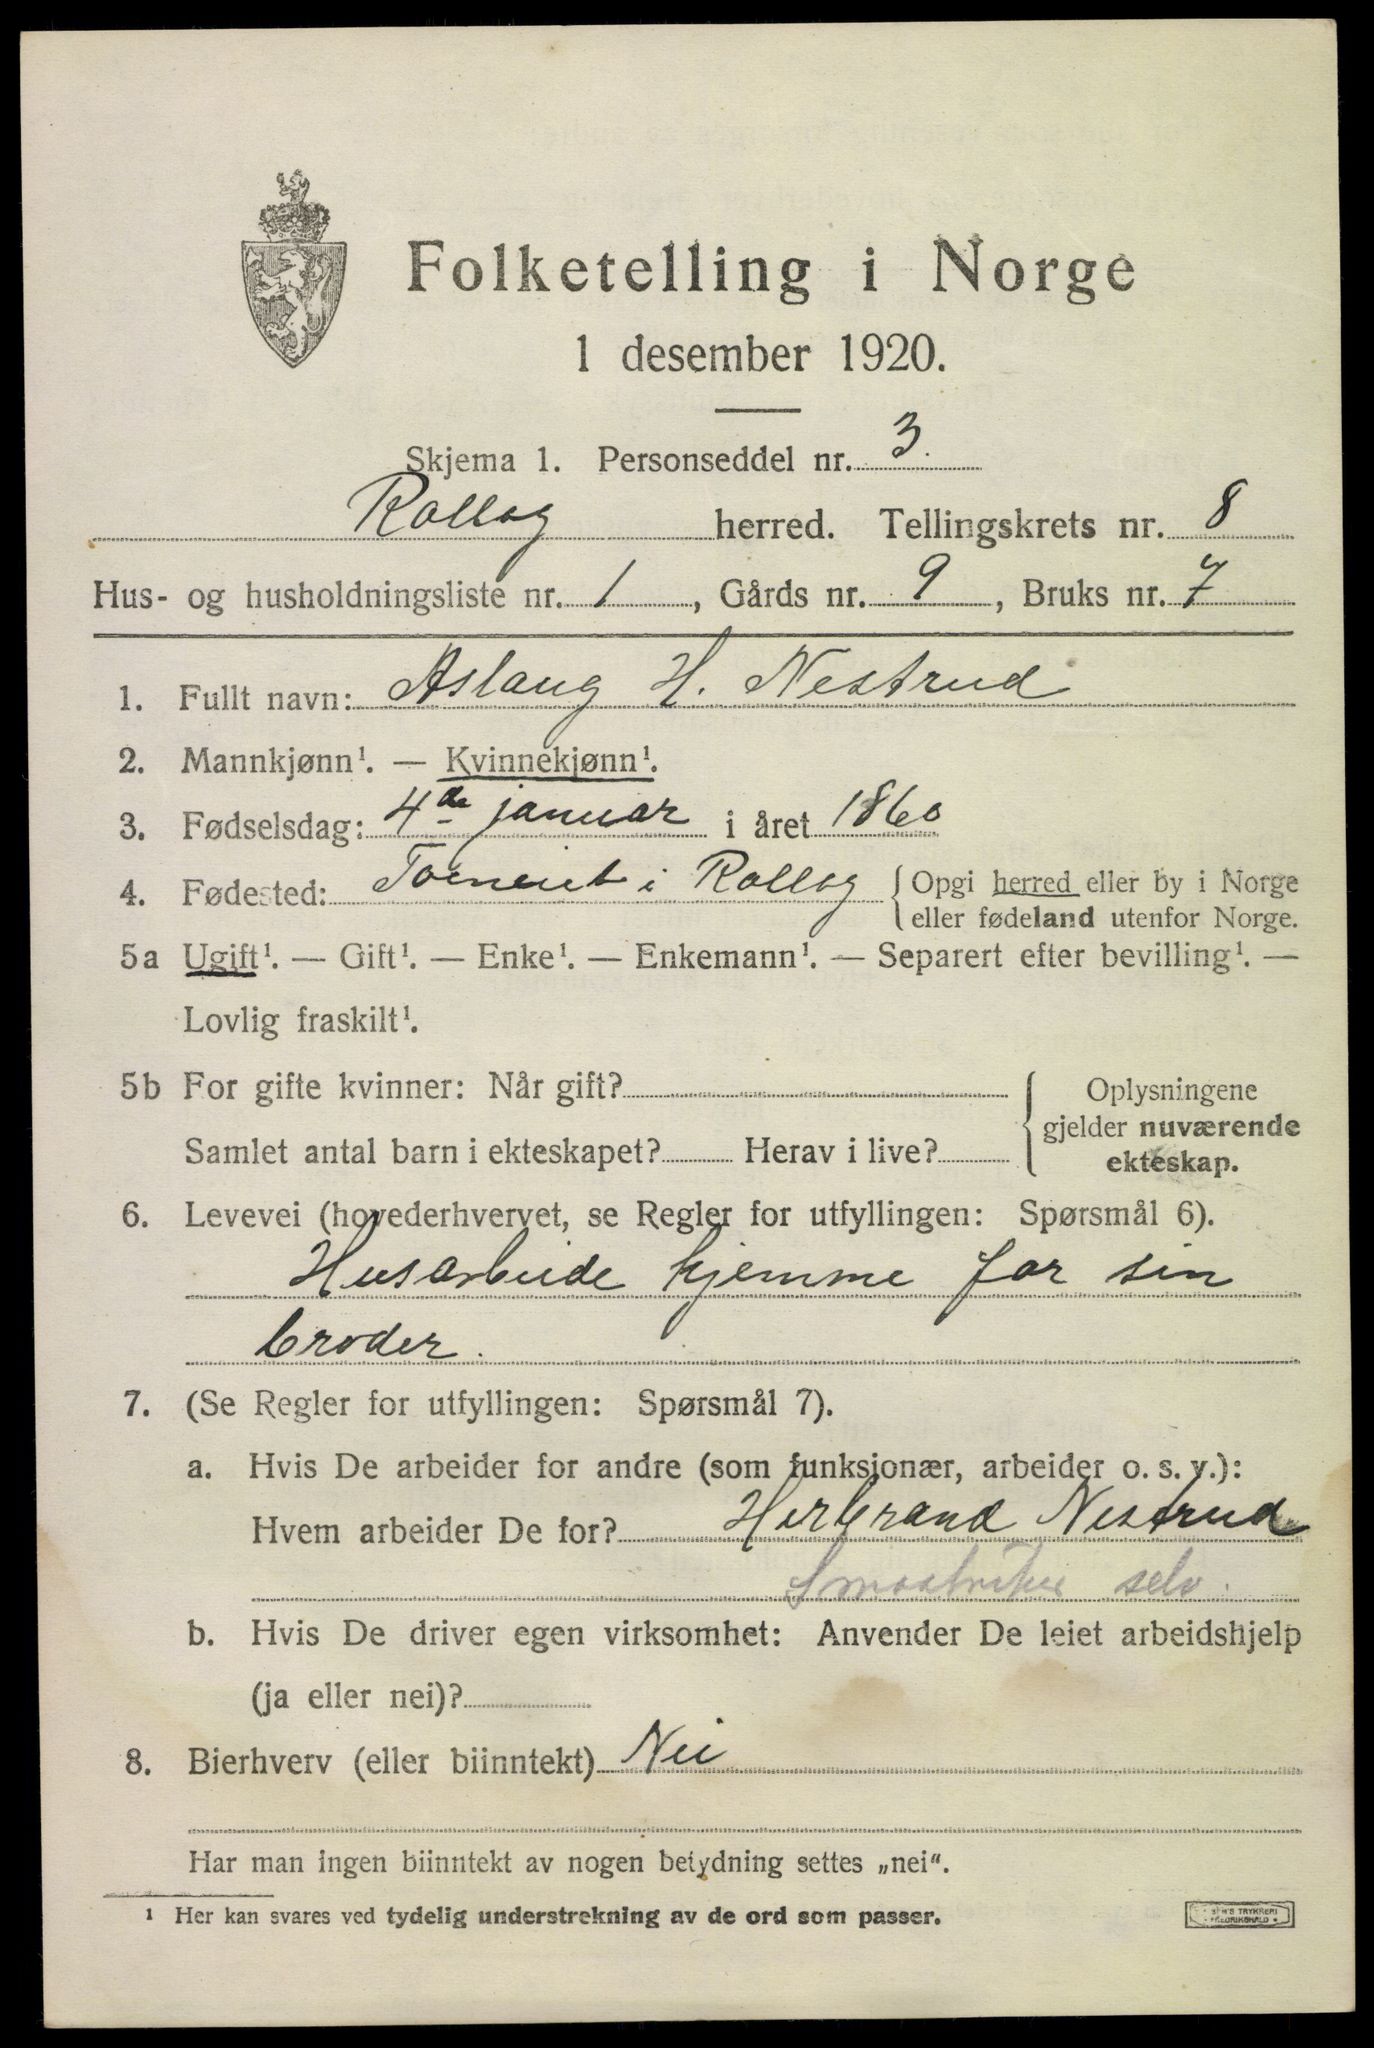 Folketelling i Norge
1 desember 1920.
Skjema 1. Personseddel nr. 3.
Rollag herred. Tellingskrets nr. 8
Hus- og husholdningsliste nr. 1, Gårds nr. 9, Bruks nr. 7
1. Fullt navn: Aslaug H. Nestrud
2. Mannkjønn¹. — Kvinnekjønn¹.
3. Fødselsdag: 4de januar i året 1860
4. Fødested: i Rollag { Opgi herred eller by i Norge
eller fødeland utenfor Norge.
5a Ugift¹. — Gift¹. — Enke¹. — Enkemann¹. — Separert efter bevilling¹. —
Lovlig fraskilt¹.
5b For gifte kvinner: Når gift? { Oplysningene
gjelder nuværende
Samlet antal barn i ekteskapet? Herav i live? ekteskap.
6. Levevei (hovederhvervet, se Regler for utfyllingen: Spørsmål 6).
Husarbeide hjemme for sin
broder.
7. (Se Regler for utfyllingen: Spørsmål 7).
a. Hvis De arbeider for andre (som funksjonær, arbeider o. s. v.):
Hvem arbeider De for? Herbrand Nestrud
Smaabruker selv.
b. Hvis De driver egen virksomhet: Anvender De leiet arbeidshjelp
(ja eller nei)?
8. Bierhverv (eller biinntekt) Nei
Har man ingen biinntekt av nogen betydning settes „nei“.
¹ Her kan svares ved tydelig understrekning av de ord som passer.
TRYKKERI
FREDRIKSHALD